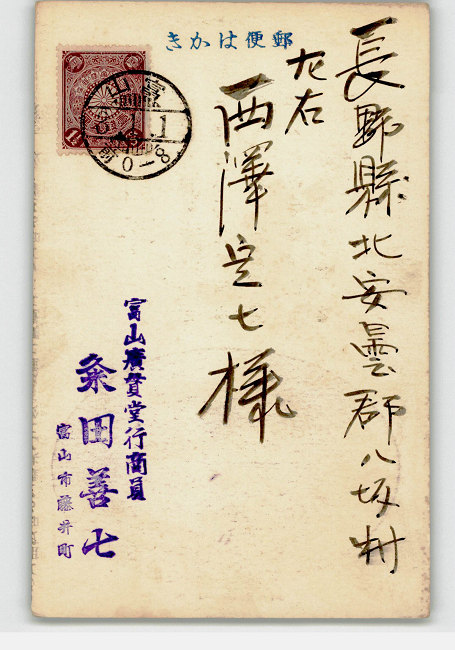 郵便はかき
長野縣北安曇郡八坂村
左右
西澤定七様
富山廣貫堂行商員
粂田善七
富山市藤井町
富山
1.1
前0-8